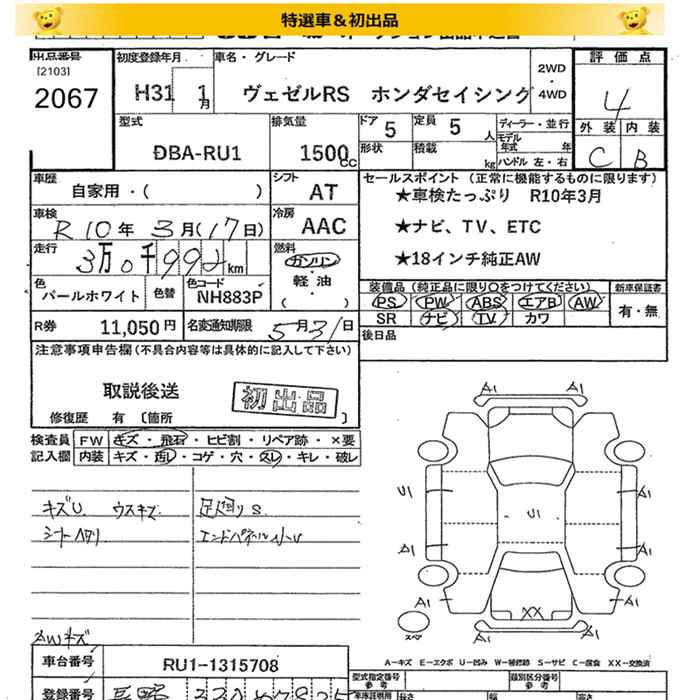 特選車＆初出品
出品番号 初度登録年月 車名・グレード 評価点
[2103]
2067 H31 1月 ヴェゼルRS ホンダセイシング 2WD・4WD 4
外装 内装
C B
型式 排気量 ドア 5 定員 5人 ディーラー・並行
モデル年式 年
DBA-RU1 1500cc 形状 積載 kg ハンドル 左・右
車歴 シフト セールスポイント (正常に機能するものに限ります)
自家用・( ) AT ★車検たっぷり R10年3月
車検 冷房
R 10年 3月(17日) AAC ★ナビ、TV、ETC
走行 燃料
3万0千992km ガソリン・軽油・( ) ★18インチ純正AW
色 色替 色コード 装備品 (純正品に限り○をつけてください) 新車保証書
パールホワイト NH883P PS PW ABS エアB AW 有・無
SR ナビ TV カワ
R券 11,050円 名変通知期限 5月31日 後日品
注意事項申告欄 (不具合内容等は具体的に記入して下さい)
取説後送 初出品
修復歴 有 〔箇所 〕
検査員 FW キズ・飛石・ヒビ割・リペア跡・×要
記入欄 内装 キズ・汚レ・コゲ・穴・スレ・キレ・破レ
キズU ウスキズ 足回りS
シートヘタリ エンドパネル小U
AWキズ
A1 A1
A1
U1 U1 A1
A1 A1
A1 A1
XX
スペア
A…キズ E…エクボ U…凹み W…補修跡 S…サビ C…腐食 XX…交換済
車台番号 RU1-1315708
型式指定番号 参考 類別区分番号 参考
登録番号 長野